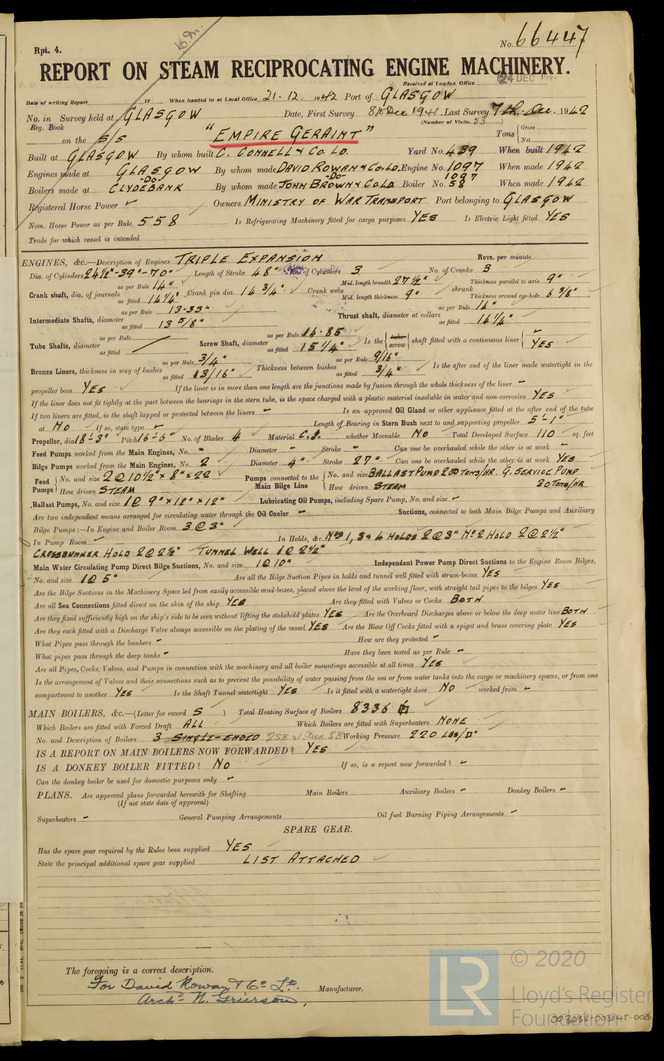 Rpt. 4.
No. 66447
REPORT ON STEAM RECIPROCATING ENGINE MACHINERY.
Received at London Office 24 DEC
Date of writing Report 19 When handed in at Local Office 21.12.1942 Port of GLASGOW
No. in Survey held at GLASGOW Date, First Survey 8th Dec. 1941, Last Survey 7th. Dec. 1942
Reg. Book (Number of Visits 53
on the S/S "EMPIRE GERAINT" Tons { Gross Net
Built at GLASGOW By whom built C. CONNELL & CO. LD. Yard No. 439 When built 1942
Engines made at GLASGOW By whom made DAVID ROWAN & CO. LD. Engine No. 1097 When made 1942
Boilers made at -DO- CLYDEBANK By whom made -DO- JOHN BROWN & CO LD Boiler No. 1097 58 When made 1942
Registered Horse Power - Owners MINISTRY OF WAR TRANSPORT Port belonging to GLASGOW
Nom. Horse Power as per Rule 558 Is Refrigerating Machinery fitted for cargo purposes YES Is Electric Light fitted YES
Trade for which vessel is intended
ENGINES, &c.—Description of Engines TRIPLE EXPANSION Revs. per minute
Dia. of Cylinders 24½"-39"-70" Length of Stroke 48" No. of Cylinders 3 No. of Cranks 3
Crank shaft, dia. of journals as per Rule 14" as fitted 14¼" Crank pin dia. 14¾" Crank webs Mid. length breadth 27½" Mid. length thickness 9" shrunk Thickness parallel to axis 9" Thickness around eye-hole 6⅜"
Intermediate Shafts, diameter as per Rule 13.33" as fitted 13⅝" Thrust shaft, diameter at collars as per Rule 14" as fitted 14¼"
Tube Shafts, diameter as per Rule as fitted Screw Shaft, diameter as per Rule 14.85 as fitted 15¼" Is the { tube screw } shaft fitted with a continuous liner { YES
Bronze Liners, thickness in way of bushes as per Rule 3/4" as fitted 13/16" Thickness between bushes as per Rule 9/16" as fitted 3/4" Is the after end of the liner made watertight in the
propeller boss YES If the liner is in more than one length are the junctions made by fusion through the whole thickness of the liner -
If the liner does not fit tightly at the part between the bearings in the stern tube, is the space charged with a plastic material insoluble in water and non-corrosive YES
If two liners are fitted, is the shaft lapped or protected between the liners - Is an approved Oil Gland or other appliance fitted at the after end of the tube
shaft NO If so, state type - Length of Bearing in Stern Bush next to and supporting propeller 5'-1"
Propeller, dia. 18'-3" Pitch 16'-6" No. of Blades 4 Material C.I. whether Moveable NO Total Developed Surface 110 sq. feet
Feed Pumps worked from the Main Engines, No. - Diameter - Stroke - Can one be overhauled while the other is at work -
Bilge Pumps worked from the Main Engines, No. 2 Diameter 4" Stroke 27" Can one be overhauled while the other is at work YES
Feed Pumps { No. and size 2@10½" x 8" x 22 How driven STEAM Pumps connected to the Main Bilge Line { No. and size BALLAST PUMP 200 TONS/HR. G. SERVICE PUMP 80 TONS/HR How driven STEAM
Ballast Pumps, No. and size 1@9" x 12" x 12" Lubricating Oil Pumps, including Spare Pump, No. and size -
Are two independent means arranged for circulating water through the Oil Cooler - Suctions, connected to both Main Bilge Pumps and Auxiliary
Bilge Pumps:—In Engine and Boiler Room 3@3"
In Pump Room - In Holds, &c. Nos 1, 3 & 4 HOLDS 2@3" No 2 HOLD 2@2½"
CROSSBUNKER HOLD 2@2½" TUNNEL WELL 1@2½"
Main Water Circulating Pump Direct Bilge Suctions, No. and size 1@10" Independent Power Pump Direct Suctions to the Engine Room Bilges,
No. and size 1@5" Are all the Bilge Suction Pipes in holds and tunnel well fitted with strum-boxes YES
Are the Bilge Suctions in the Machinery Space led from easily accessible mud-boxes, placed above the level of the working floor, with straight tail pipes to the bilges YES
Are all Sea Connections fitted direct on the skin of the ship YES Are they fitted with Valves or Cocks BOTH
Are they fixed sufficiently high on the ship's side to be seen without lifting the stokehold plates YES Are the Overboard Discharges above or below the deep water line BOTH
Are they each fitted with a Discharge Valve always accessible on the plating of the vessel YES Are the Blow Off Cocks fitted with a spigot and brass covering plate YES
What Pipes pass through the bunkers - How are they protected -
What pipes pass through the deep tanks - Have they been tested as per Rule -
Are all Pipes, Cocks, Valves, and Pumps in connection with the machinery and all boiler mountings accessible at all times YES
Is the arrangement of Valves and their connections such as to prevent the possibility of water passing from the sea or from water tanks into the cargo or machinery spaces, or from one
compartment to another YES Is the Shaft Tunnel watertight YES Is it fitted with a watertight door NO worked from -
MAIN BOILERS, &c.—(Letter for record S) Total Heating Surface of Boilers 8336
Which Boilers are fitted with Forced Draft ALL Which Boilers are fitted with Superheaters NONE
No. and Description of Boilers 3 SINGLE-ENDED Working Pressure 220 LBS/□"
IS A REPORT ON MAIN BOILERS NOW FORWARDED? YES
IS A DONKEY BOILER FITTED? NO If so, is a report now forwarded? -
Can the donkey boiler be used for domestic purposes only -
PLANS. Are approved plans forwarded herewith for Shafting Main Boilers - Auxiliary Boilers - Donkey Boilers -
(If not state date of approval)
Superheaters - General Pumping Arrangements Oil fuel Burning Piping Arrangements -
SPARE GEAR.
Has the spare gear required by the Rules been supplied YES
State the principal additional spare gear supplied LIST ATTACHED
The foregoing is a correct description.
For David Rowan & Co Ld.
Archd N. Grierson, Manufacturer.
LR
© 2020
Lloyd's Register
Foundation
003035-003045-0081